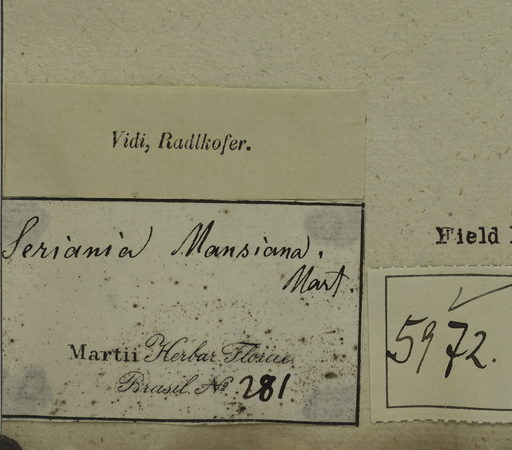 Vidi, Radlkofer.
Seriania Mansiana.
Mart.
Martii Herbar. Florae
Brasil. No 281
Field
5972.